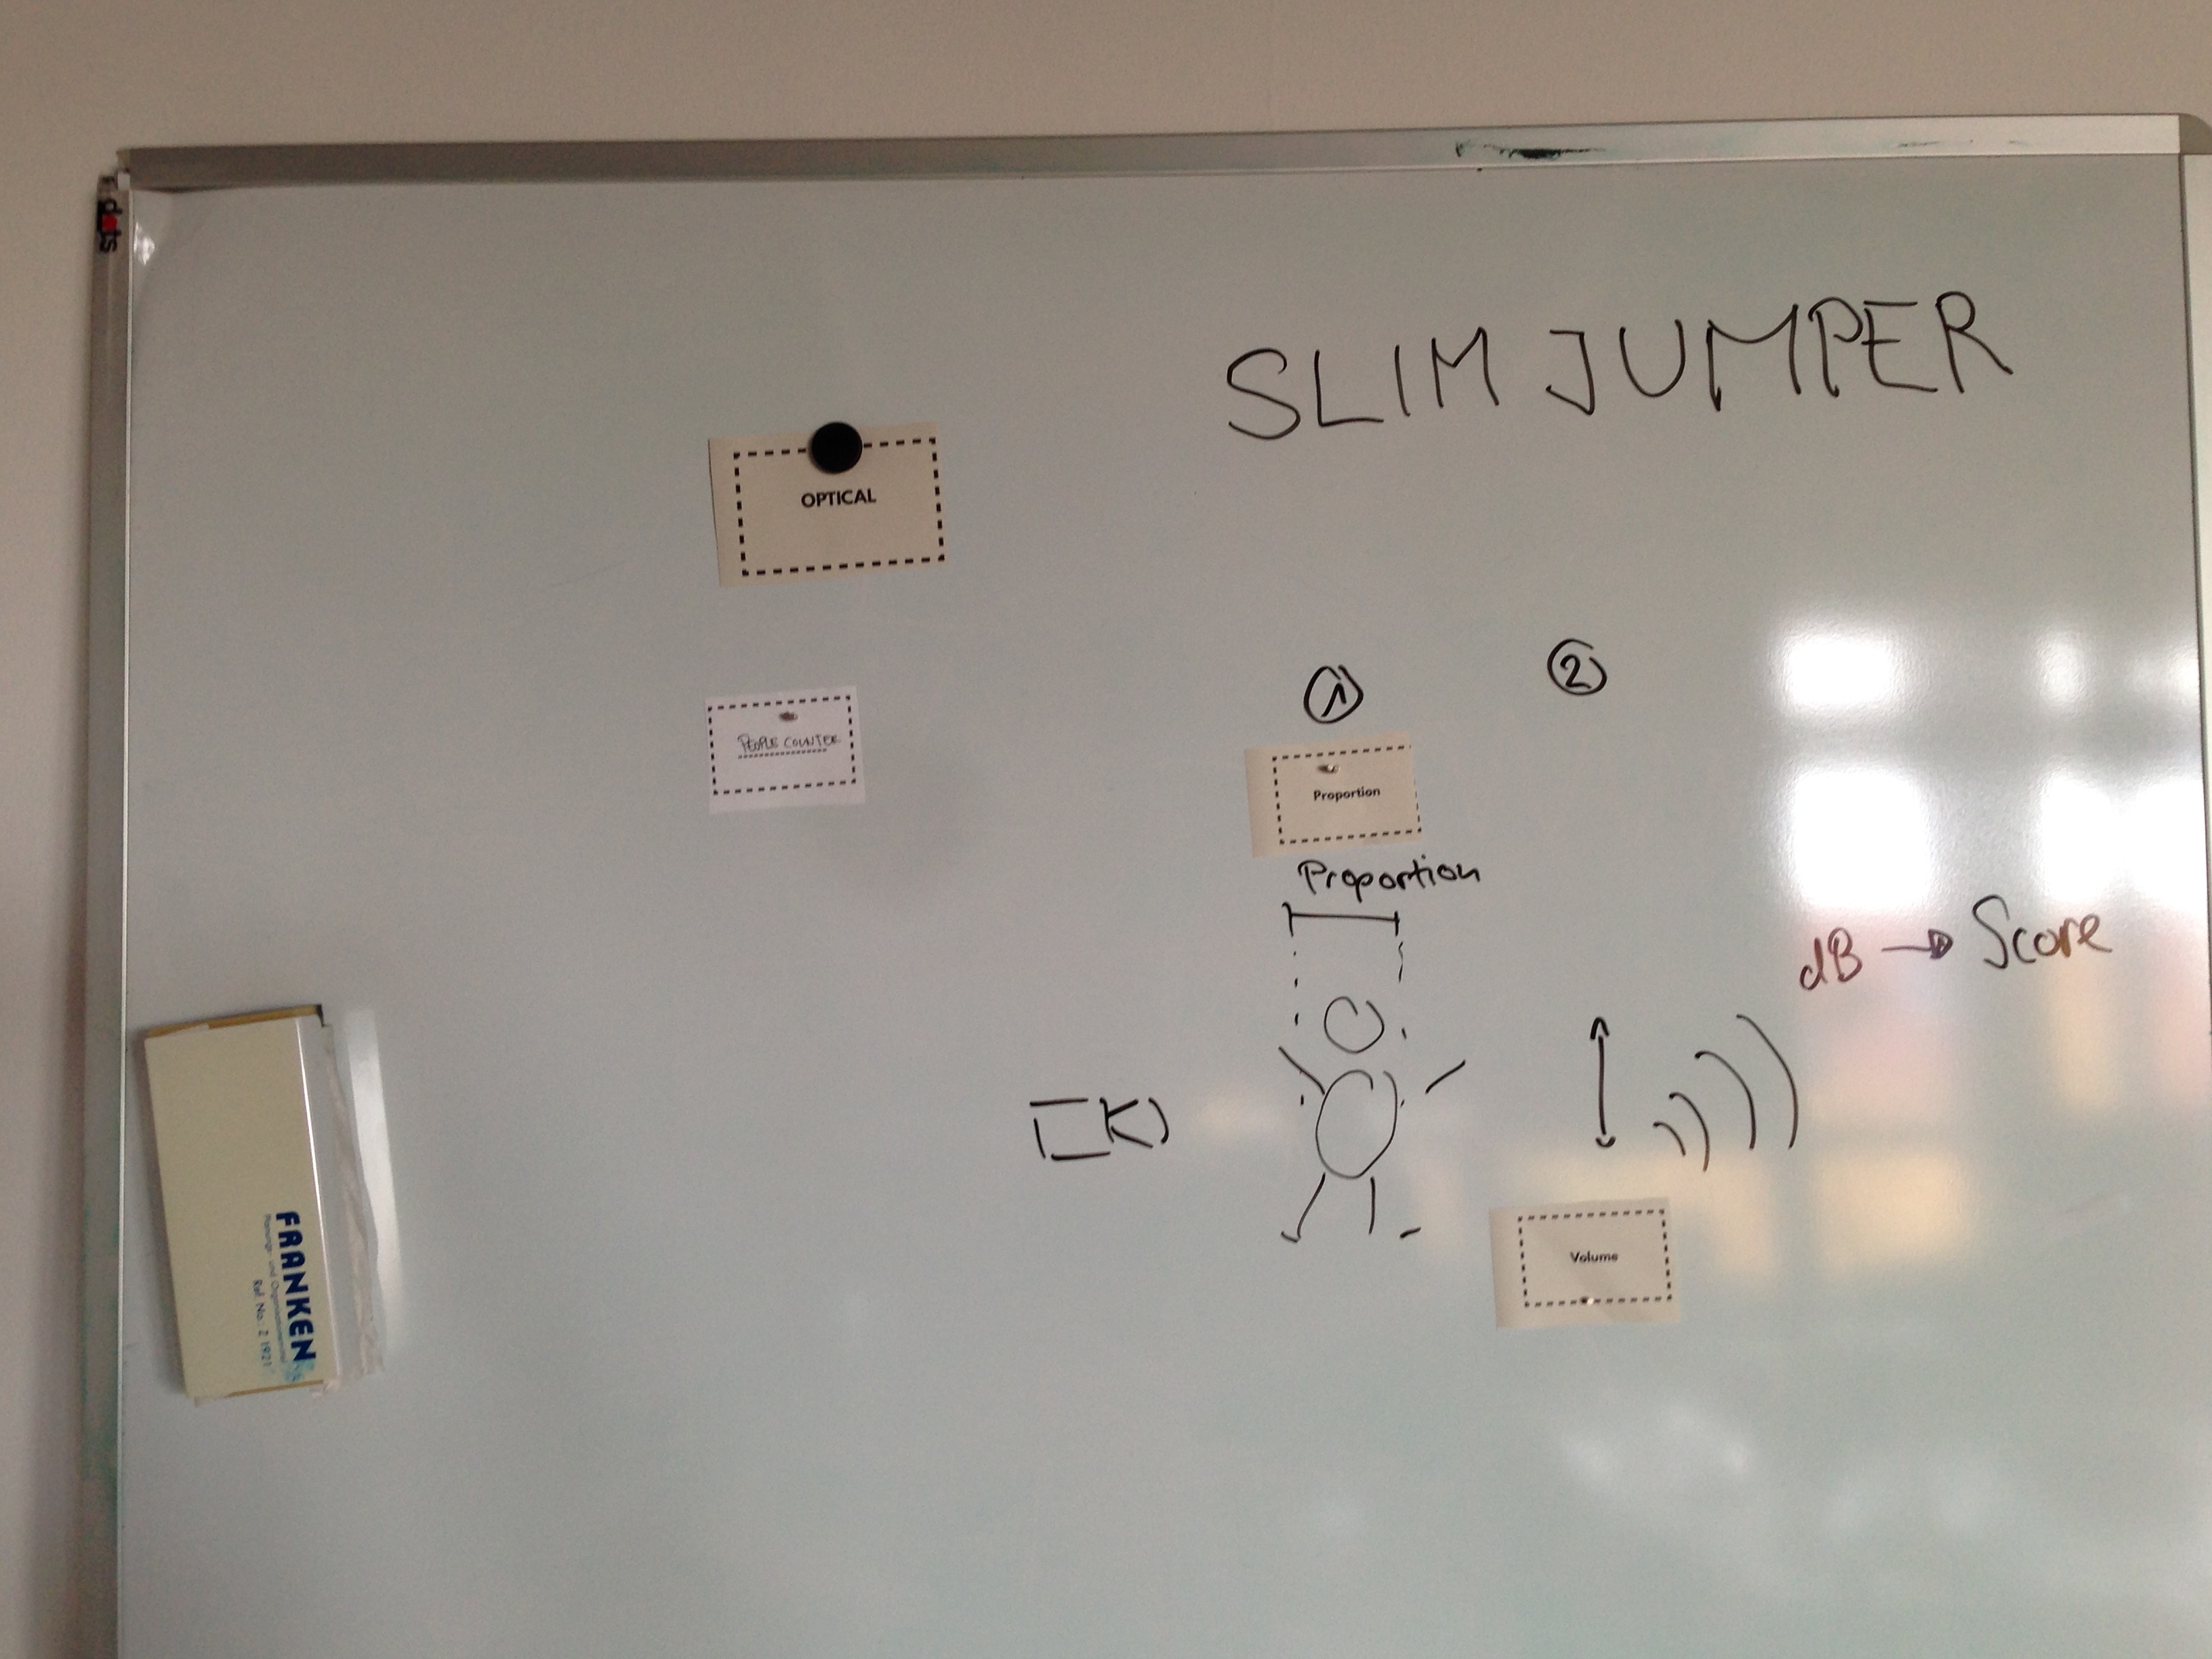 dots
SLIM JUMPER
OPTICAL
PEOPLE COUNTER
1
2
Proportion
Proportion
dB → Score
Volume
FRANKEN
Planungs- und Organisationsmittel
Ref. No.: Z 1921